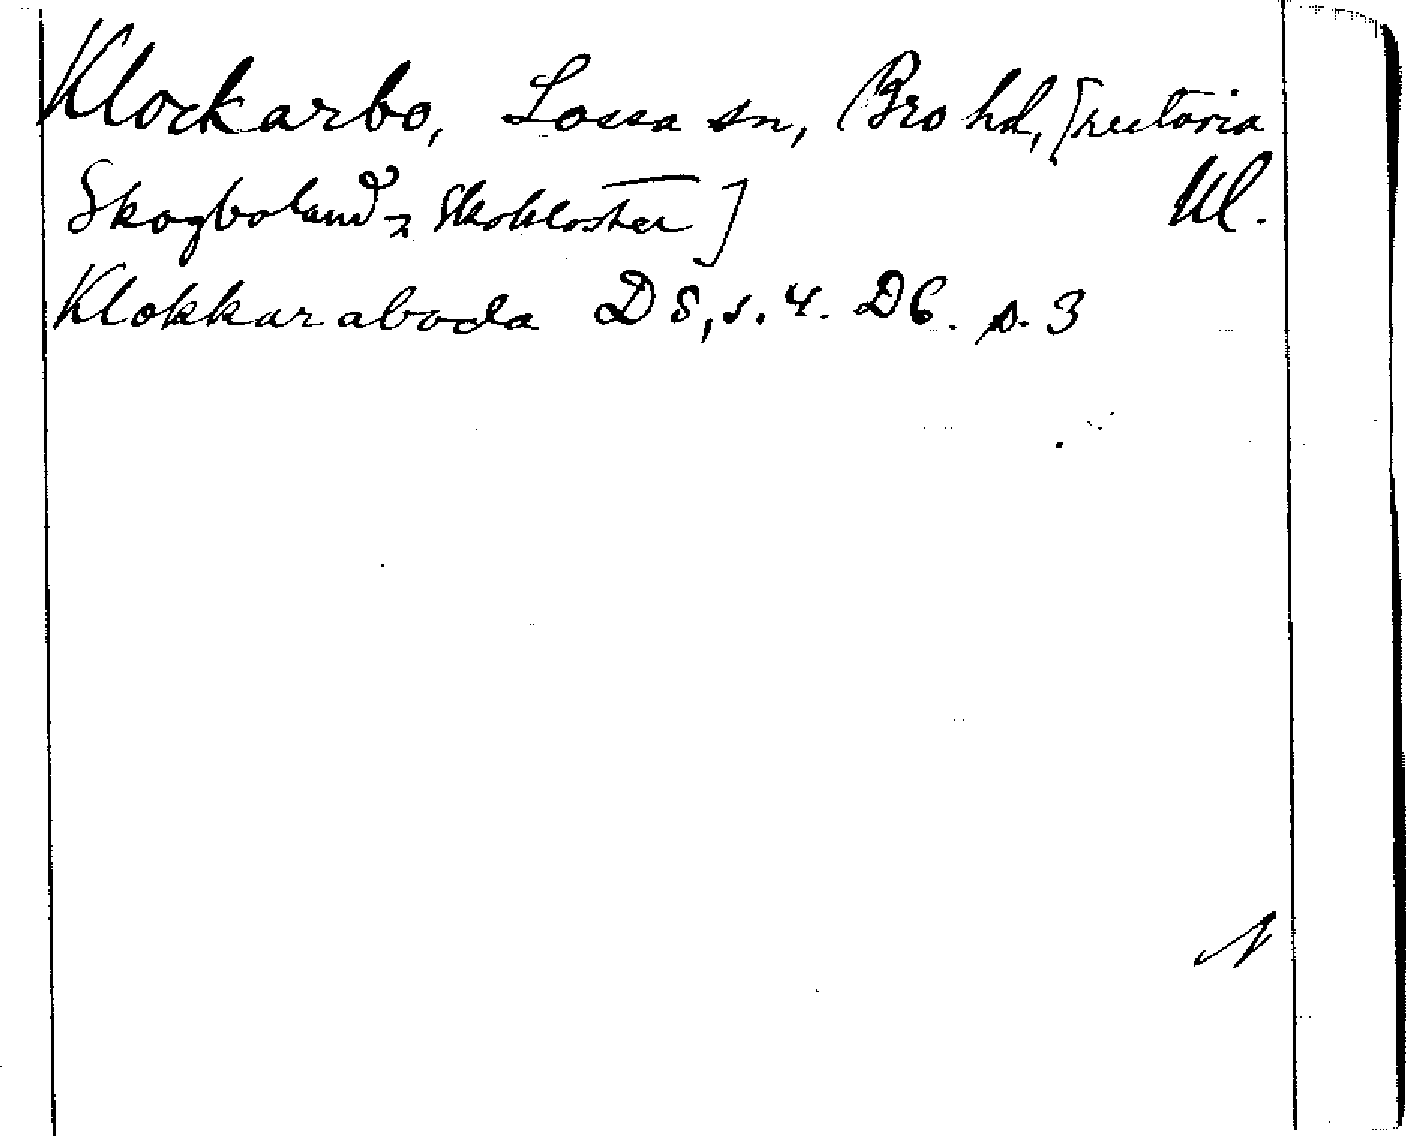 Klockarbo, Lossa sn, Bro hd, [rectoria
Skogboland, Skokloster] Ul.
Klokkaraboda D 8, s. 4. D6. s. 3
N